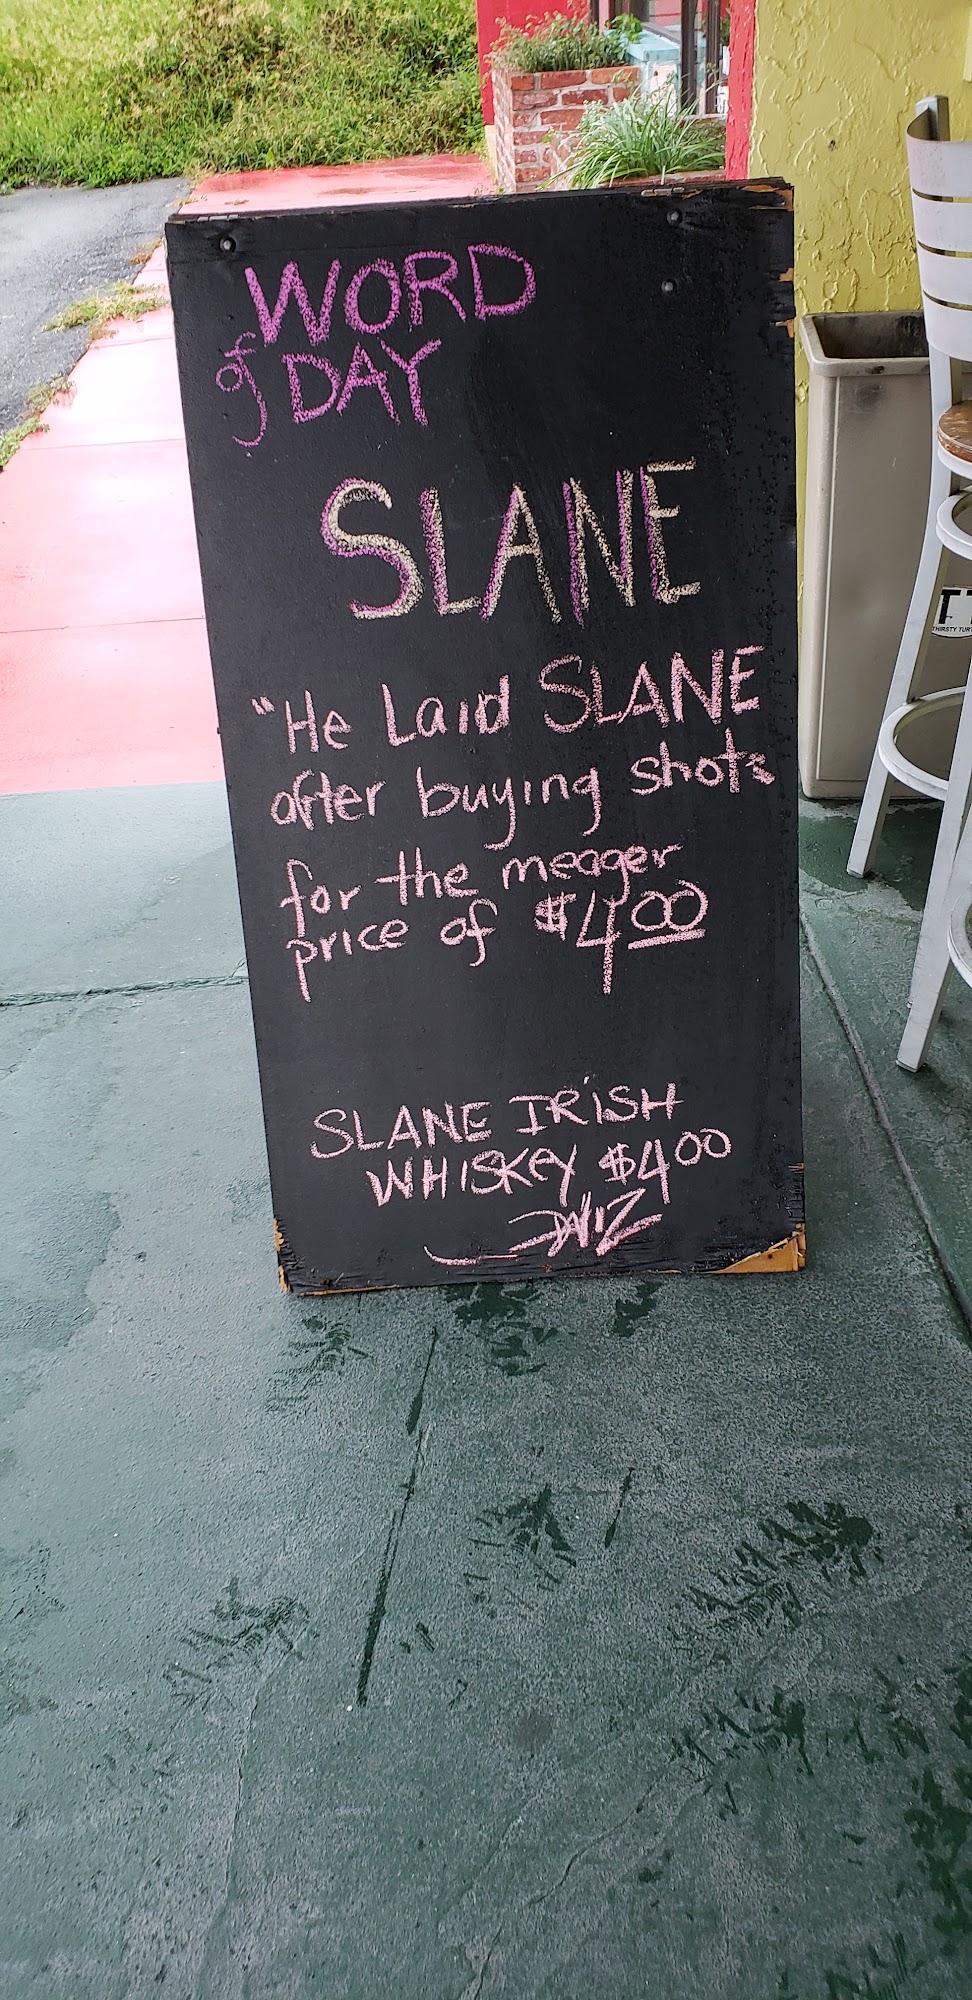 WORD
of DAY
SLANE
"He Laid SLANE
after buying shots
for the meager
price of $4.00
SLANE IRISH
WHISKEY $4.00
THIRSTY TUR